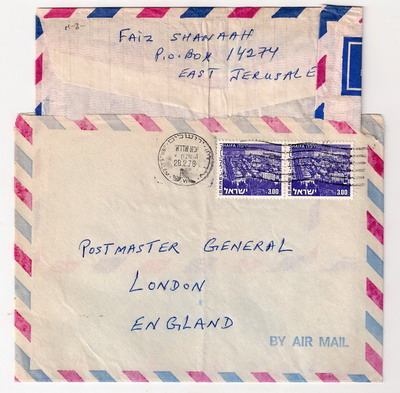 M-2-
FAIZ SHANAAH
P.O.BOX 14274
EAST JERUSALE
ירושלים
26.2.78
HAIFA חיפה
ישראל 3.00
HAIFA חיפה
ישראל 3.00
POSTMASTER GENERAL
LONDON
ENGLAND
BY AIR MAIL